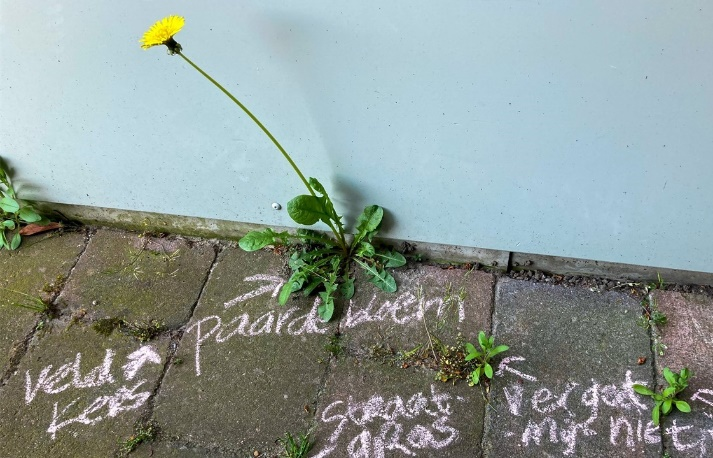 paardebloem
veld
kers
straat
gras
vergeet
-mij niet